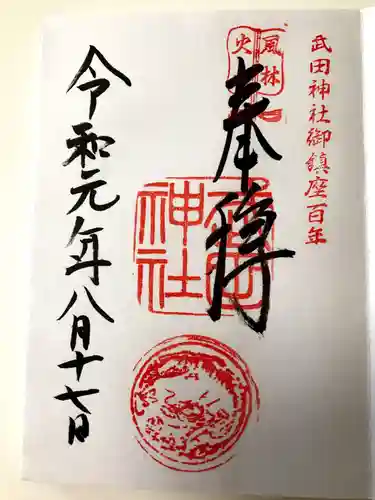 武田神社御鎮座百年
風林火
奉拝
武田神社
令和元年八月十七日